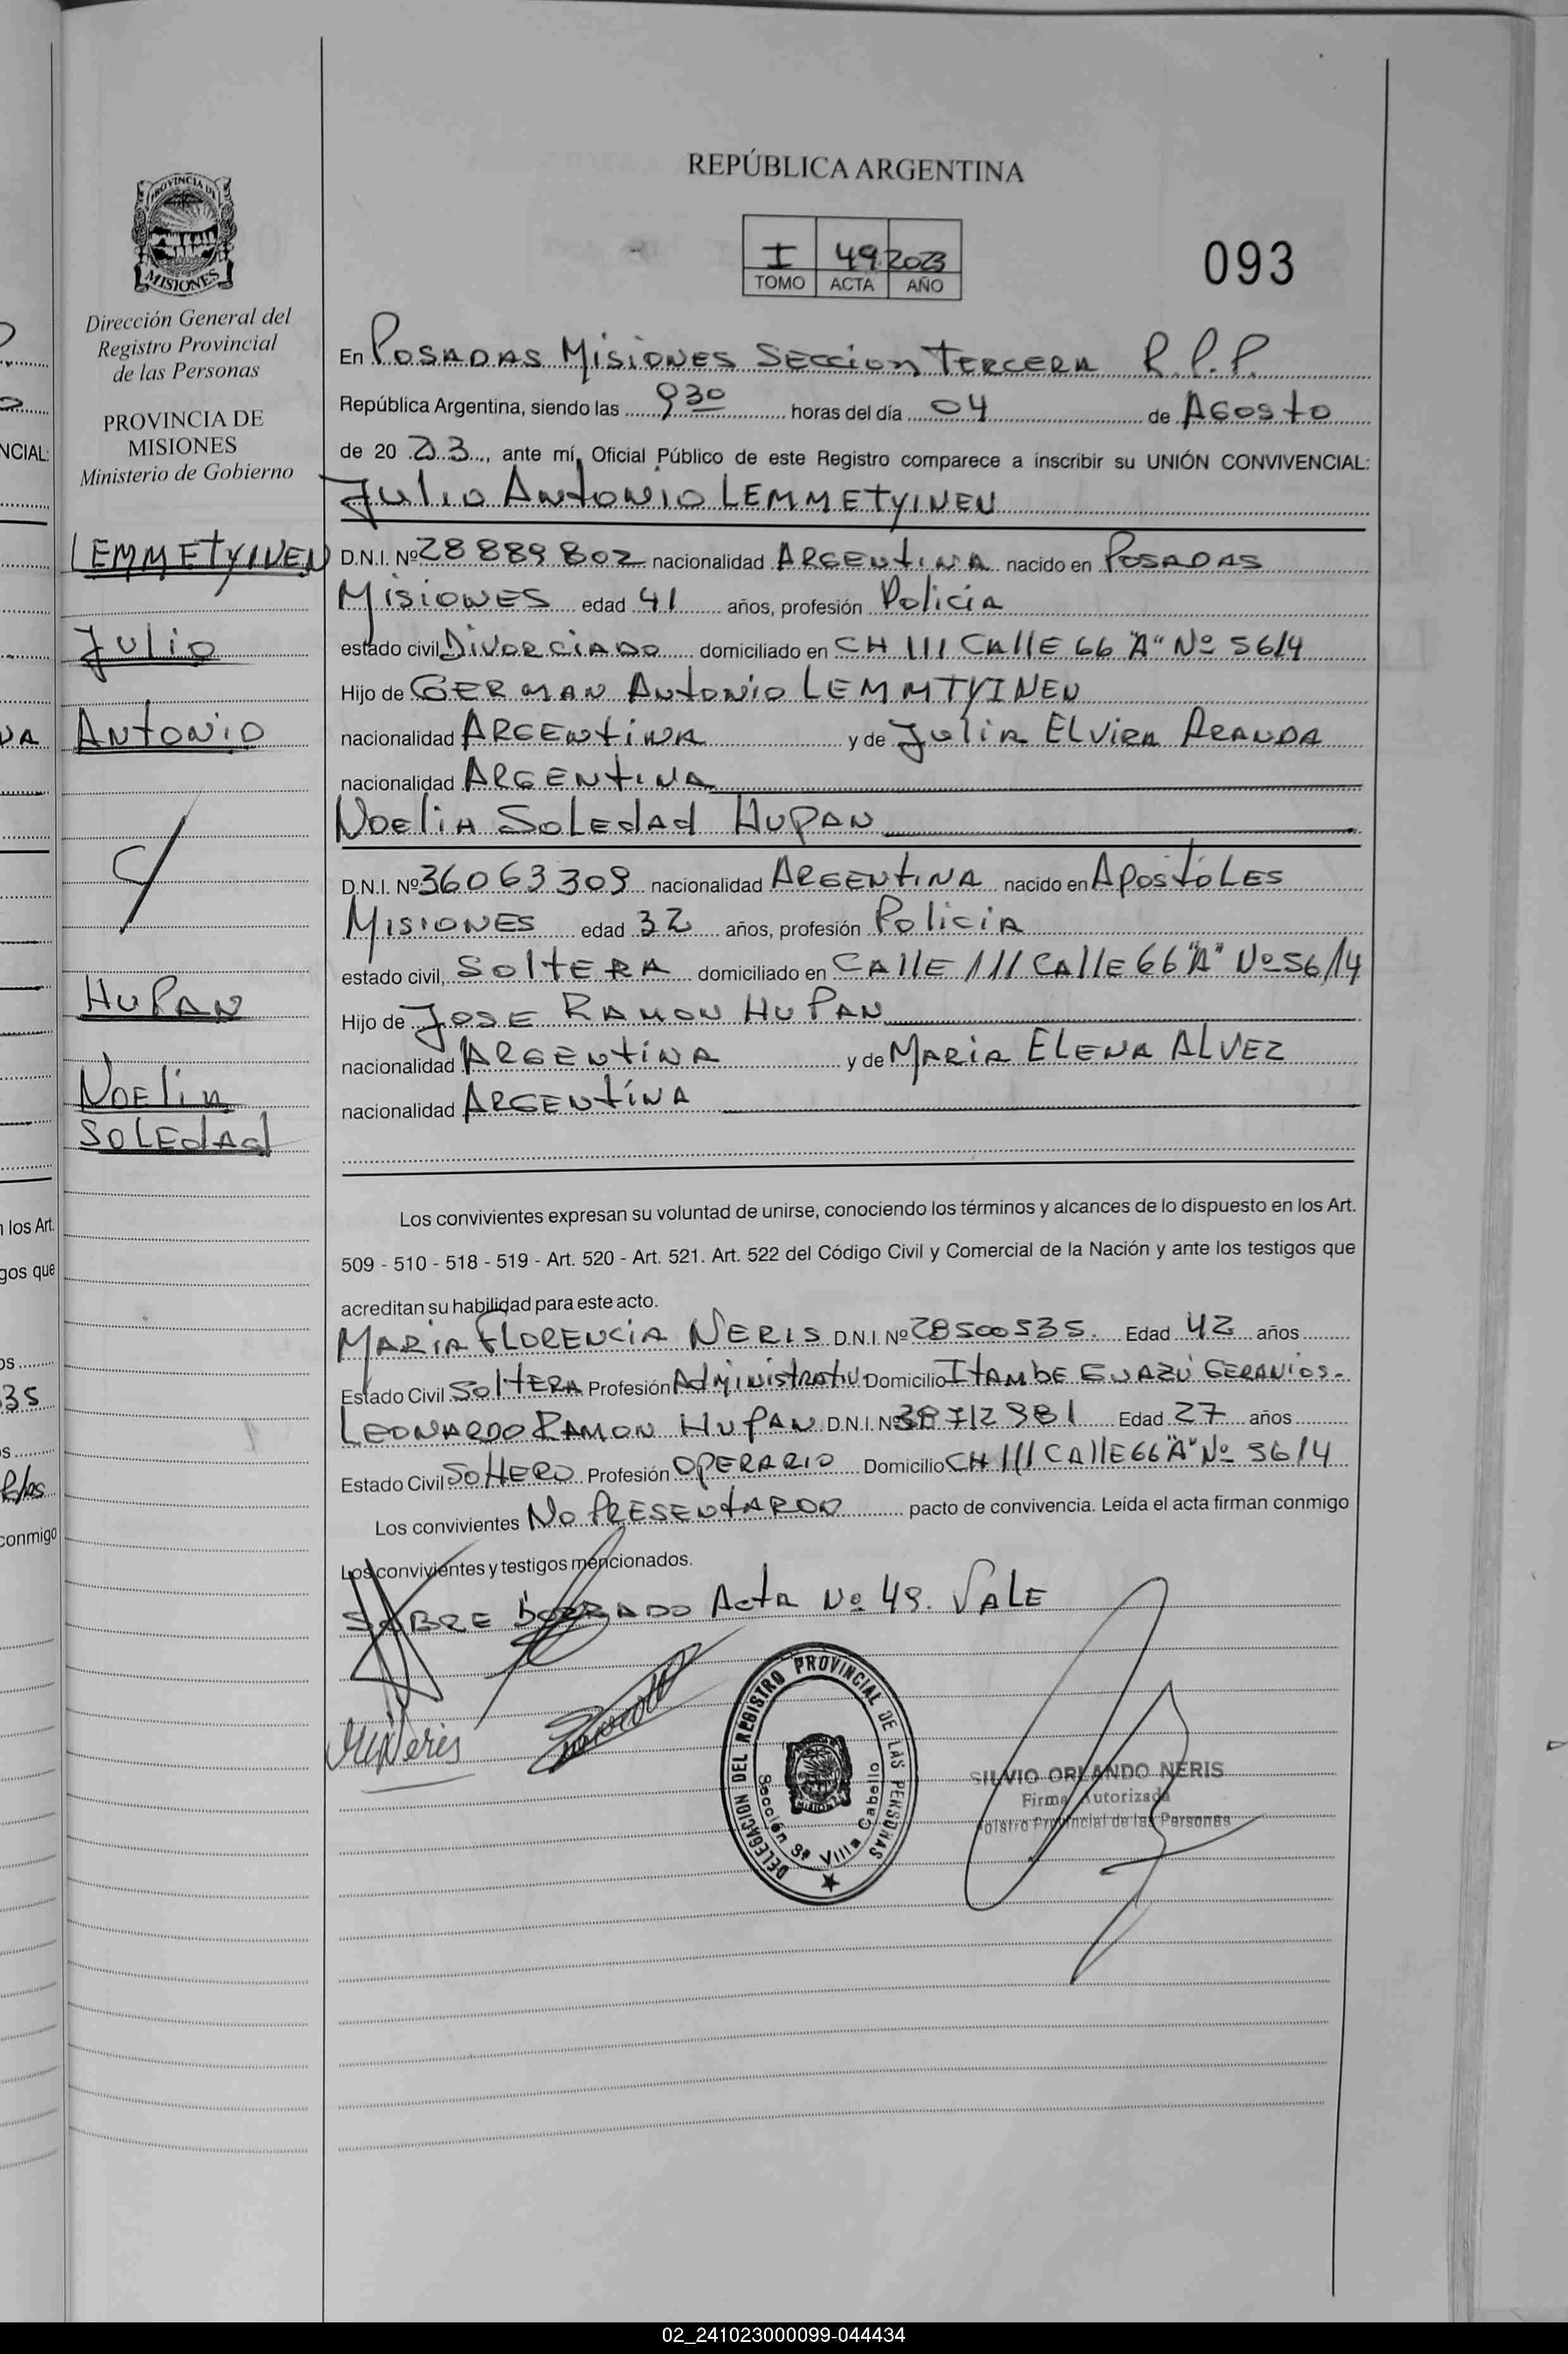 REPÚBLICA ARGENTINA
I 49 2023
TOMO ACTA AÑO
093
PROVINCIA DE
MISIONES
Dirección General del
Registro Provincial
de las Personas
PROVINCIA DE
MISIONES
Ministerio de Gobierno
LEMMETYINEN
Julio
Antonio
C/
HUPAN
Noelia
SOLEdAd
En POSADAS MISIONES SECCION TERCERA R.P.P.
República Argentina, siendo las 9 30 horas del día 04 de AGOSTO
de 20 23, ante mí, Oficial Público de este Registro comparece a inscribir su UNIÓN CONVIVENCIAL:
Julio ANTONIO LEMMETYINEN
D.N.I. Nº 28 889 802 nacionalidad ARGENTINA nacido en POSADAS
MISIONES edad 41 años, profesión Policia
estado civil DIVORCIADO domiciliado en CH III CALLE 66 "A" Nº 5614
Hijo de GERMAN ANTONIO LEMMTYINEN
nacionalidad ARGENTINA y de Julia ELVIRA ARANDA
nacionalidad ARGENTINA
Noelia SOLEdAd HUPAN
D.N.I. Nº 36063309 nacionalidad ARGENTINA nacido en APOSTOLES
MISIONES edad 32 años, profesión Policia
estado civil, SOLTERA domiciliado en CALLE III CALLE 66 "A" Nº 5614
Hijo de JOSE RAMON HUPAN
nacionalidad ARGENTINA y de MARIA ELENA ALVEZ
nacionalidad ARGENTINA
Los convivientes expresan su voluntad de unirse, conociendo los términos y alcances de lo dispuesto en los Art.
509 - 510 - 518 - 519 - Art. 520 - Art. 521. Art. 522 del Código Civil y Comercial de la Nación y ante los testigos que
acreditan su habilidad para este acto.
MARIA FLORENCIA NERIS D.N.I. Nº 28500535. Edad 42 años
Estado Civil SOLTERA Profesión Domicilio ITAMBE GUAZÚ GERANIOS.
LEONARDO RAMON HUPAN D.N.I. Nº Edad 27 años
Estado Civil SOLTERO Profesión OPERARIO Domicilio CH III CALLE 66 "A" Nº 5614
Los convivientes NO PRESENTARON pacto de convivencia. Leída el acta firman conmigo
Los convivientes y testigos mencionados.
SOBRE BORRADO Acta Nº 49. VALE
DELEGACION DEL REGISTRO PROVINCIAL DE LAS PERSONAS
Sección 3ª Villa Cabello
SILVIO ORLANDO NERIS
Firma Autorizada
Provincial de las Personas
NCIAL:
n los Art.
gos que
conmigo
02_241023000099-044434